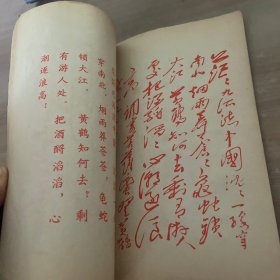 茫〻九派流中國沉〻一线穿
南北烟雨莽苍〻龟蛇锁
大江黄鹤知何去剩有游人
处把酒酹滔〻心潮逐浪
高
穿南北。烟雨莽苍苍，龟蛇
锁大江。黄鹤知何去？剩
有游人处。把酒酹滔滔，心
潮逐浪高！